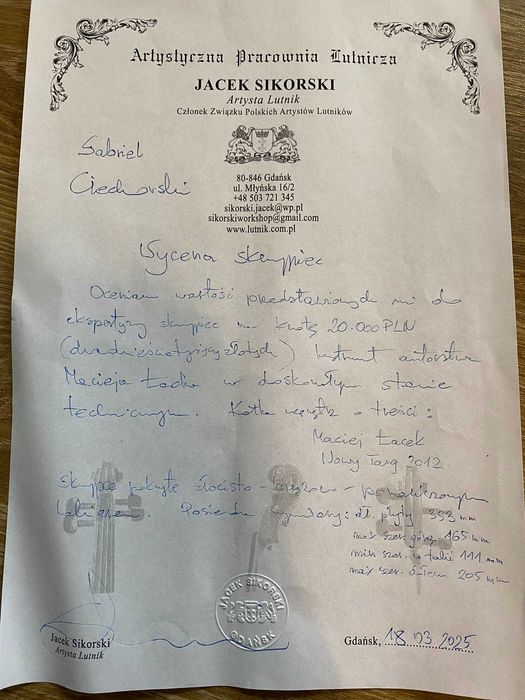 Artystyczna Pracownia Lutnicza
JACEK SIKORSKI
Artysta Lutnik
Członek Związku Polskich Artystów Lutników
Gabriel
Ciechorski
80-846 Gdańsk
ul. Młyńska 16/2
+48 503 721 345
sikorski.jacek@wp.pl
sikorskiworkshop@gmail.com
www.lutnik.com.pl
Wycena skrzypiec
Oceniam wartość przedstawionych mi do
ekspertyzy skrzypiec na kwotę 20.000 PLN
(dwadzieściatysięcyzłotych) Instrument autorstwa
Macieja Łacka w doskonałym stanie
technicznym. Kartka wewnątrz o treści:
Maciej Łacek
Nowy Targ 2012
Skrzypce pokryte złocisto-brązowo-pomarańczowym
lakierem. Posiadają wymiary: dł. płyty 353 mm
max szer. górą 165 mm
min szer. w talii 111 mm
max szer. dołem 205 mm
JACEK SIKORSKI
GDAŃSK
Jacek Sikorski
Artysta Lutnik
Gdańsk, 18 03 2025